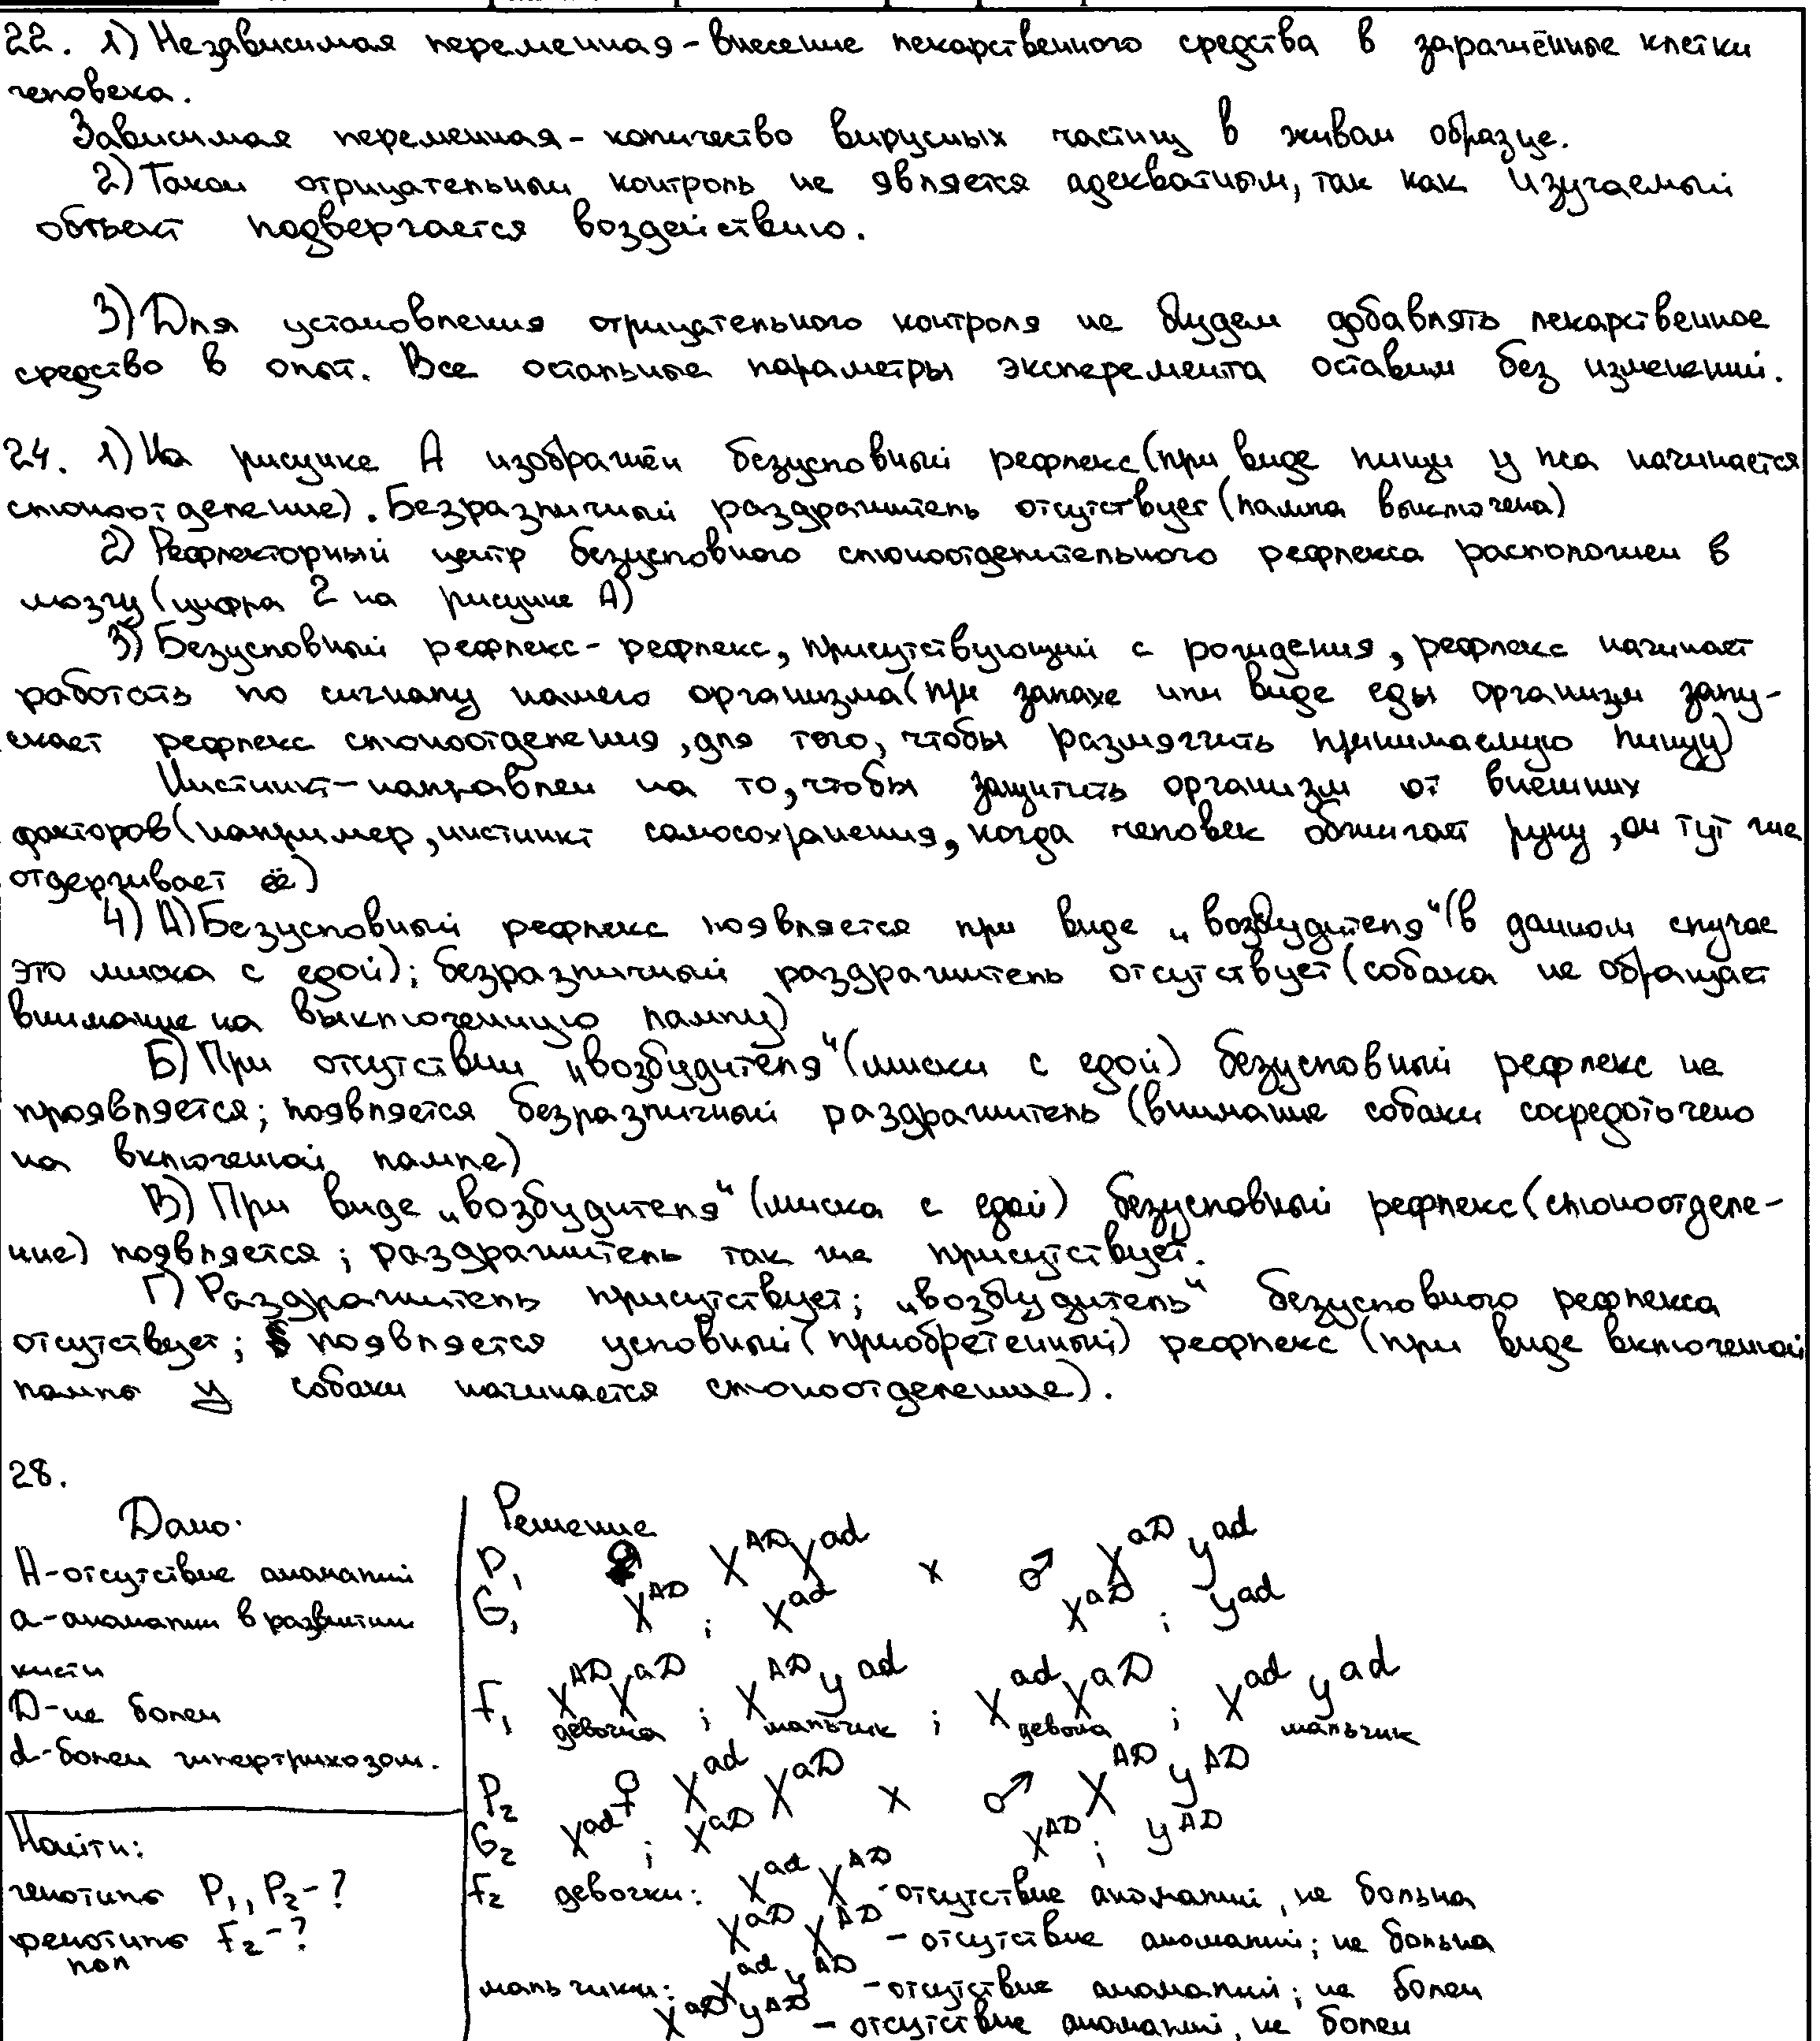 22. 1) Независимая переменная - внесение лекарственного средства в заражённые клетки
человека.
Зависимая переменная - количество вирусных частиц в живом образце.
2) Такой отрицательный контроль не является адекватным, так как изучаемый
объект подвергается воздействию.
3) Для установления отрицательного контроля не будем добавлять лекарственное
средство в опыт. Все остальные параметры эксперемента оставим без изменений.
24. 1) На рисунке А изображён безусловный рефлекс (при виде пищи у пса начинается
слюноотделение). Безразличный раздражитель отсутствует (лампа выключена)
2) Рефлекторный центр безусловного слюноотделительного рефлекса расположен в
мозгу (цифра 2 на рисунке А)
3) Безусловный рефлекс - рефлекс, присутствующий с рождения, рефлекс начинает
работать по сигналу нашего организма (при запахе или виде еды организм запу-
скает рефлекс слюноотделения, для того, чтобы размягчить принимаемую пищу)
Инстинкт - направлен на то, чтобы защитить организм от внешних
факторов (например, инстинкт самосохранения, когда человек обжигает руку, он тут же
отдергивает её)
4) А) Безусловный рефлекс появляется при виде „возбудителя“ (в данном случае
это миска с едой); безразличный раздражитель отсутствует (собака не обращает
внимание на выключенную лампу)
Б) При отсутствии „возбудителя“ (миски с едой) безусловный рефлекс не
проявляется; появляется безразличный раздражитель (внимание собаки сосредоточено
на включенной лампе)
В) При виде „возбудителя“ (миска с едой) безусловный рефлекс (слюноотделе-
ние) появляется; раздражитель так же присутствует.
Г) Раздражитель присутствует; „возбудитель“ безусловного рефлекса
отсутствует; появляется условный (приобретенный) рефлекс (при виде включенной
лампы у собаки начинается слюноотделение).
28.
Дано:
А - отсутствие аномалий
а - аномалии в развитии
кисти
D - не болен
d - болен гипертрихозом.
Найти:
генотипы P₁, P₂ - ?
фенотипы F₂ - ?
пол
Решение
P₁ ♀ X^AD X^ad x ♂ X^aD y^ad
G₁ X^AD ; X^ad X^aD ; y^ad
F₁ X^AD X^aD ; X^AD y^ad ; X^ad X^aD ; X^ad y^ad
девочка мальчик девочка мальчик
P₂ ♀ X^ad X^aD x ♂ X^AD y^AD
G₂ X^ad ; X^aD X^AD ; y^AD
F₂ девочки: X^ad X^AD - отсутствие аномалий, не больна
X^aD X^AD - отсутствие аномалий; не больна
мальчики: X^ad y^AD - отсутствие аномалий; не болен
X^aD y^AD - отсутствие аномалий, не болен